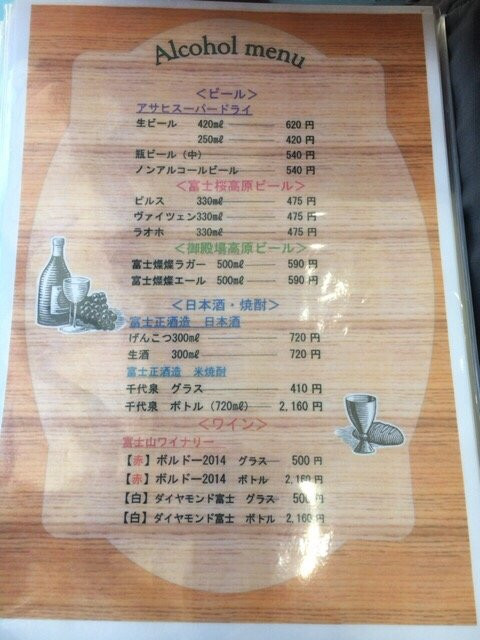 Alcohol menu
＜ビール＞
アサヒスーパードライ
生ビール 420㎖ 620 円
250㎖ 420 円
瓶ビール（中） 540 円
ノンアルコールビール 540 円
＜富士桜高原ビール＞
ピルス 330㎖ 475 円
ヴァイツェン330㎖ 475 円
ラオホ 330㎖ 475 円
＜御殿場高原ビール＞
富士燦燦ラガー 500㎖ 590 円
富士燦燦エール 500㎖ 590 円
＜日本酒・焼酎＞
富士正酒造 日本酒
げんこつ300㎖ 720 円
生酒 300㎖ 720 円
富士正酒造 米焼酎
千代泉 グラス 410 円
千代泉 ボトル（720㎖） 2,160 円
＜ワイン＞
富士山ワイナリー
【赤】ボルドー2014 グラス 500 円
【赤】ボルドー2014 ボトル 2,160 円
【白】ダイヤモンド富士 グラス 500 円
【白】ダイヤモンド富士 ボトル 2,160 円